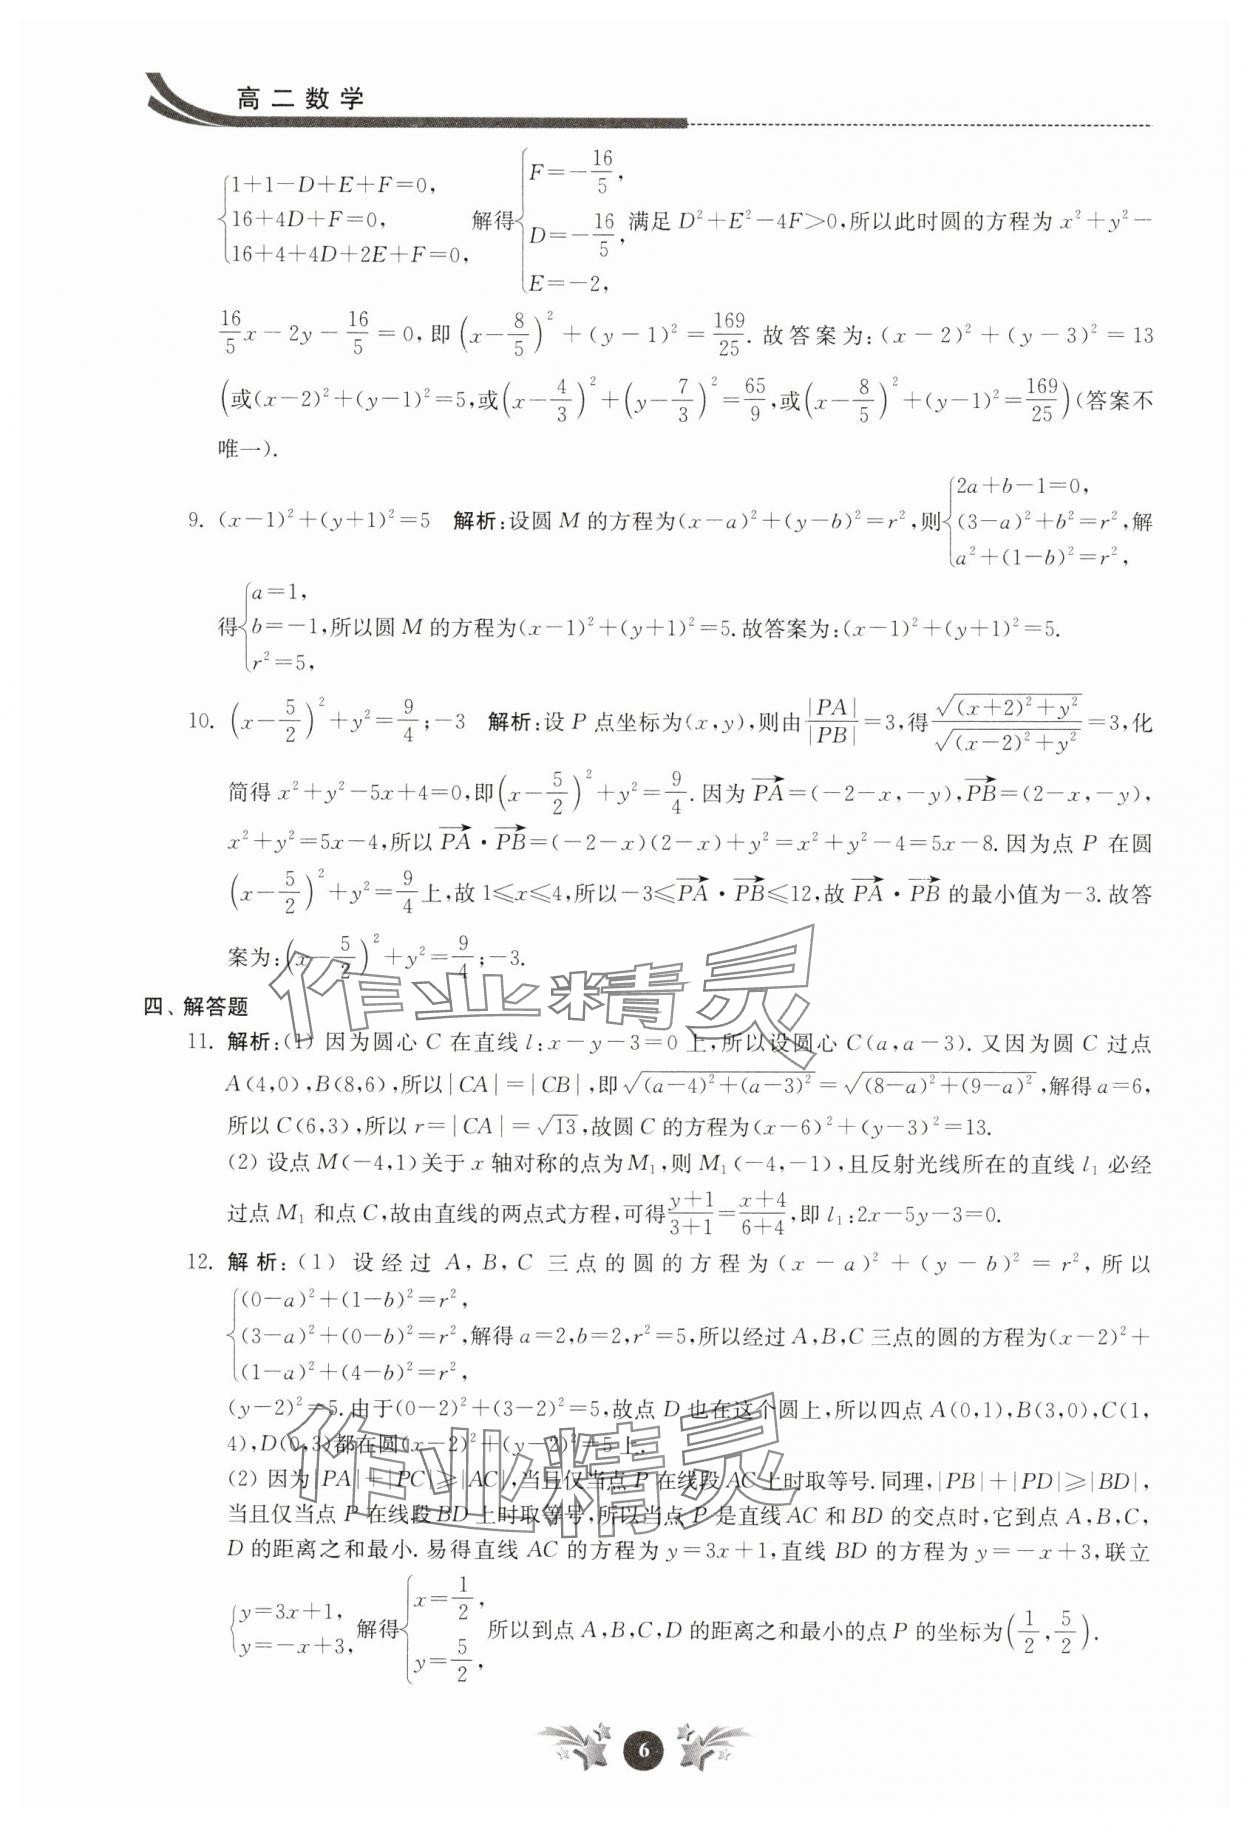 高二数学
{1+1-D+E+F=0, 16+4D+F=0, 16+4+4D+2E+F=0, 解得{F=-16/5, D=-16/5, E=-2, 满足 D²+E²-4F>0,所以此时圆的方程为 x²+y²-
16/5 x-2y-16/5=0,即(x-8/5)²+(y-1)²=169/25.故答案为:(x-2)²+(y-3)²=13
(或(x-2)²+(y-1)²=5,或(x-4/3)²+(y-7/3)²=65/9,或(x-8/5)²+(y-1)²=169/25)(答案不
唯一).
9. (x-1)²+(y+1)²=5 解析:设圆 M 的方程为(x-a)²+(y-b)²=r²,则{2a+b-1=0, (3-a)²+b²=r², a²+(1-b)²=r², 解
得{a=1, b=-1, r²=5, 所以圆 M 的方程为(x-1)²+(y+1)²=5.故答案为:(x-1)²+(y+1)²=5.
10. (x-5/2)²+y²=9/4;-3 解析:设 P 点坐标为(x,y),则由|PA|/|PB|=3,得√((x+2)²+y²)/√((x-2)²+y²)=3,化
简得 x²+y²-5x+4=0,即(x-5/2)²+y²=9/4.因为 PA→=(-2-x,-y),PB→=(2-x,-y),
x²+y²=5x-4,所以 PA→·PB→=(-2-x)(2-x)+y²=x²+y²-4=5x-8.因为点 P 在圆
(x-5/2)²+y²=9/4上,故 1≤x≤4,所以-3≤PA→·PB→≤12,故 PA→·PB→ 的最小值为-3.故答
案为:(x-5/2)²+y²=9/4;-3.
四、解答题
11. 解析:(1) 因为圆心 C 在直线 l:x-y-3=0 上,所以设圆心 C(a,a-3).又因为圆 C 过点
A(4,0),B(8,6),所以|CA|=|CB|,即√((a-4)²+(a-3)²)=√((8-a)²+(9-a)²),解得 a=6,
所以 C(6,3),所以 r=|CA|=√13,故圆 C 的方程为(x-6)²+(y-3)²=13.
(2) 设点 M(-4,1)关于 x 轴对称的点为 M₁,则 M₁(-4,-1),且反射光线所在的直线 l₁ 必经
过点 M₁ 和点 C,故由直线的两点式方程,可得(y+1)/(3+1)=(x+4)/(6+4),即 l₁:2x-5y-3=0.
12. 解析:(1) 设经过 A,B,C 三点的圆的方程为(x-a)²+(y-b)²=r²,所以
{(0-a)²+(1-b)²=r², (3-a)²+(0-b)²=r², (1-a)²+(4-b)²=r², 解得 a=2,b=2,r²=5,所以经过 A,B,C 三点的圆的方程为(x-2)²+
(y-2)²=5.由于(0-2)²+(3-2)²=5,故点 D 也在这个圆上,所以四点 A(0,1),B(3,0),C(1,
4),D(0,3)都在圆(x-2)²+(y-2)²=5上.
(2) 因为|PA|+|PC|≥|AC|,当且仅当点 P 在线段 AC 上时取等号.同理,|PB|+|PD|≥|BD|,
当且仅当点 P 在线段 BD 上时取等号,所以当点 P 是直线 AC 和 BD 的交点时,它到点 A,B,C,
D 的距离之和最小.易得直线 AC 的方程为 y=3x+1,直线 BD 的方程为 y=-x+3,联立
{y=3x+1, y=-x+3, 解得{x=1/2, y=5/2, 所以到点 A,B,C,D 的距离之和最小的点 P 的坐标为(1/2,5/2).
作业精灵
作业精灵
6